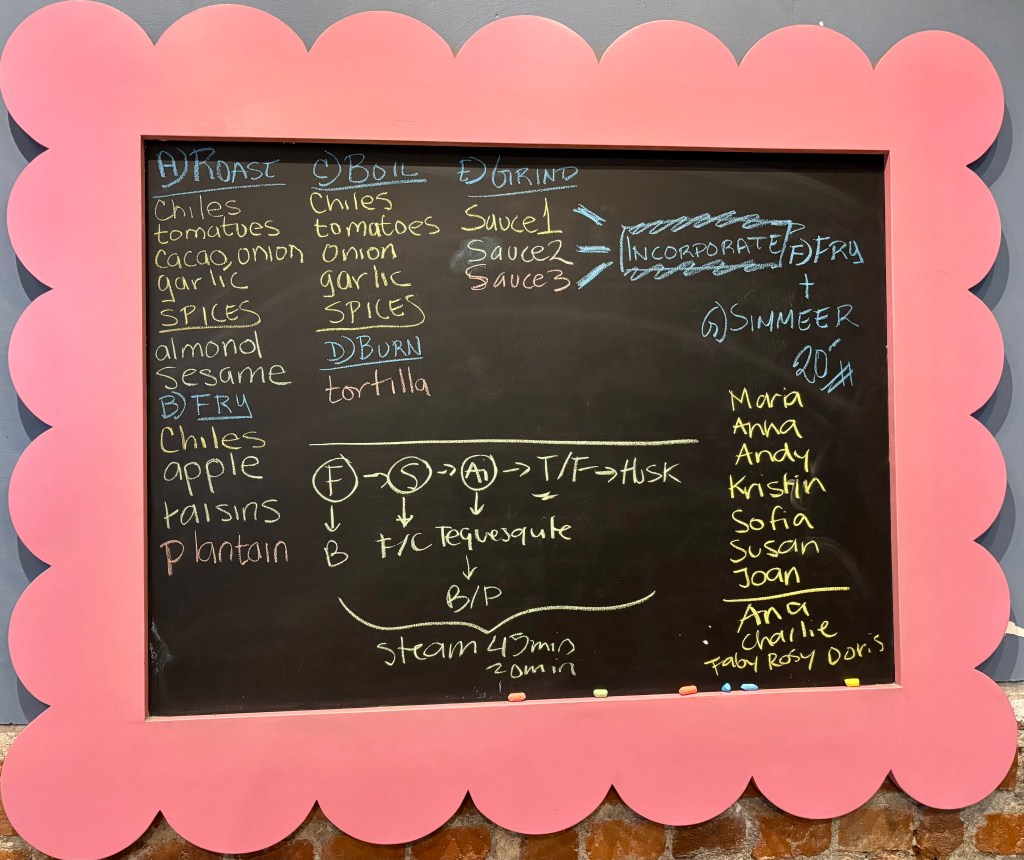 A) ROAST
Chiles
tomatoes
cacao, onion
garlic
SPICES
almond
sesame
B) FRY
Chiles
apple
raisins
plantain
C) BOIL
Chiles
tomatoes
onion
garlic
SPICES
D) BURN
tortilla
E) GRIND
Sauce1
Sauce2
Sauce3
INCORPORATE
F) FRY
+
G) SIMMEER
20'
Maria
Anna
Andy
Kristin
Sofia
Susan
Joan
Ana
Charlie
Faby Rosy Doris
F → S → → T/F → Husk
B F/C Tequesquite
B/P
steam 45min
20min